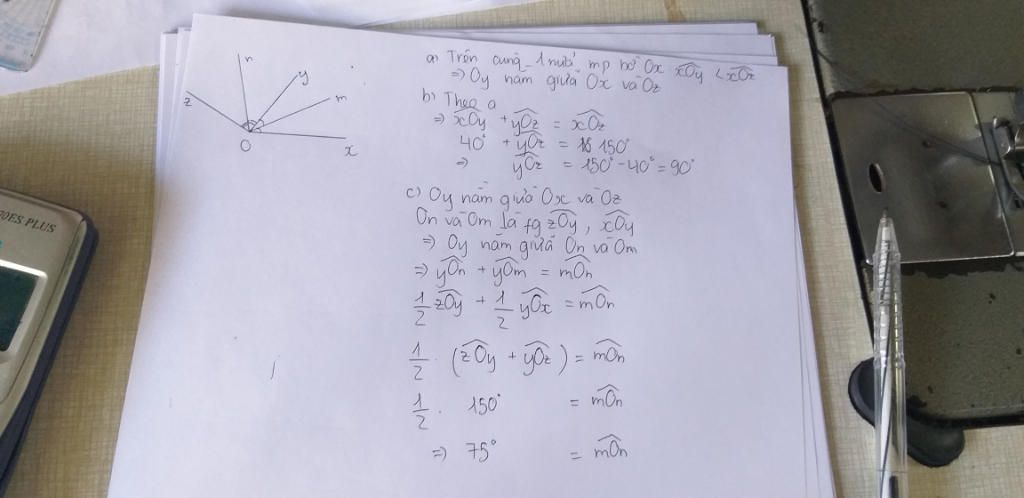 n
y
m
z
O
x
a) Trên cùng 1 nửa mp bờ Ox xOy < xOz
=> Oy nằm giữa Ox và Oz
b) Theo a
=> xOy + yOz = xOz
40° + yOz = 150°
=> yOz = 150° - 40° = 90°
c) Oy nằm giữa Ox và Oz
On và Om là fg zOy, xOy
=> Oy nằm giữa On và Om
=> yOn + yOm = mOn
1/2 zOy + 1/2 yOx = mOn
1/2 . (zOy + yOz) = mOn
1/2 . 150° = mOn
=> 75° = mOn
OES PLUS